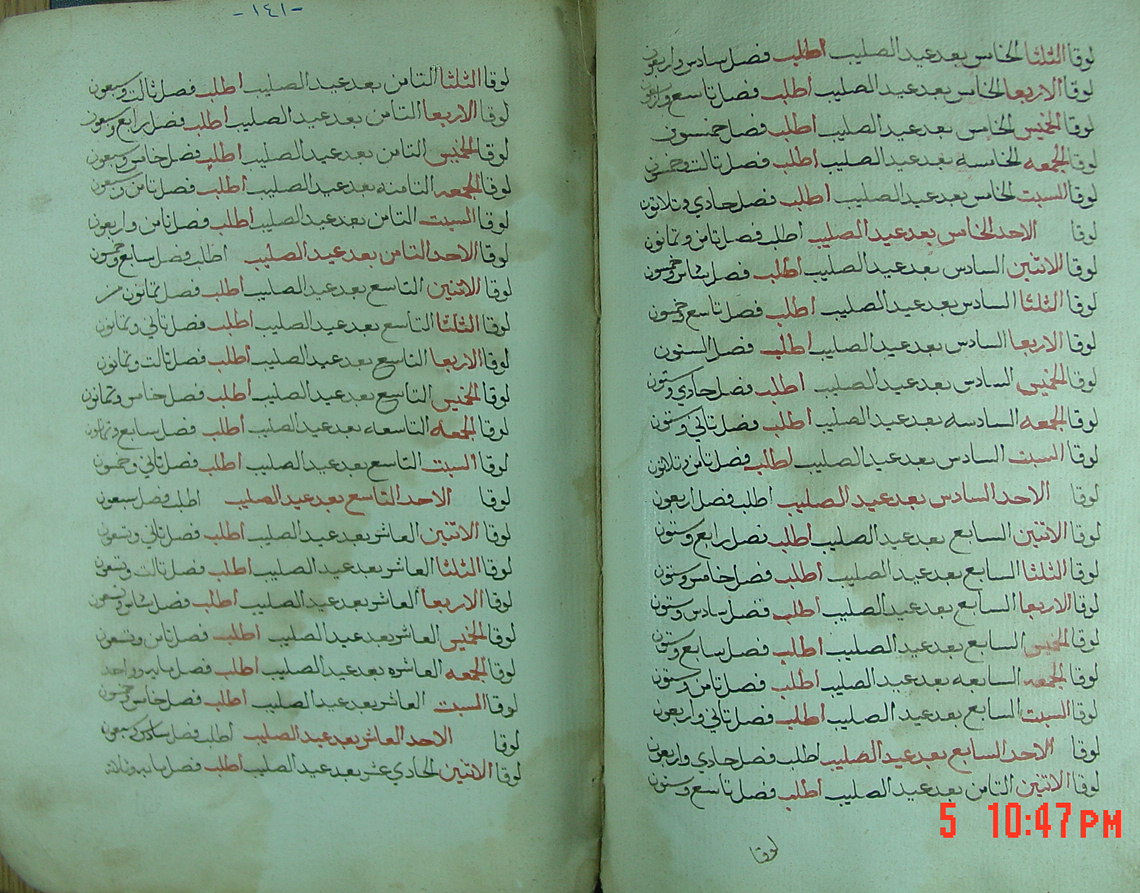 لوقا الثلثا الخامس بعد عيد الصليب اطلب فصل سادس واربعون
لوقا الاربعا الخامس بعد عيد الصليب اطلب فصل تاسع واربعون
لوقا الخميس الخامس بعد عيد الصليب اطلب فصل خمسون
لوقا الجمعه الخامسه بعد عيد الصليب اطلب فصل تالت وخمسون
لوقا السبت الخامس بعد عيد الصليب اطلب فصل حادي وتلاتون
لوقا الاحد الخامس بعد عيد الصليب اطلب فصل تامن وتمانون
لوقا الاتنين السادس بعد عيد الصليب اطلب فصل خمسون
لوقا الثلثا السادس بعد عيد الصليب اطلب فصل تاسع وخمسون
لوقا الاربعا السادس بعد عيد الصليب اطلب فصل الستون
لوقا الخميس السادس بعد عيد الصليب اطلب فصل حادي وستون
لوقا الجمعه السادسه بعد عيد الصليب اطلب فصل تاني وستون
لوقا السبت السادس بعد عيد الصليب اطلب فصل تامن وتلاتون
لوقا الاحد السادس بعد عيد الصليب اطلب فصل اربعون
لوقا الاتنين السابع بعد عيد الصليب اطلب فصل رابع وستون
لوقا الثلثا السابع بعد عيد الصليب اطلب فصل خامس وستون
لوقا الاربعا السابع بعد عيد الصليب اطلب فصل سادس وستون
لوقا الخميس السابع بعد عيد الصليب اطلب فصل سابع وستون
لوقا الجمعه السابعه بعد عيد الصليب اطلب فصل تامن وستون
لوقا السبت السابع بعد عيد الصليب اطلب فصل تاني واربعون
لوقا الاحد السابع بعد عيد الصليب اطلب فصل حادي واربعون
لوقا الاتنين التامن بعد عيد الصليب اطلب فصل تاسع وستون
لوقا
5 10:47PM
-١٤١-
لوقا الثلثا التامن بعد عيد الصليب اطلب فصل تالت وسبعون
لوقا الاربعا التامن بعد عيد الصليب اطلب فصل رابع وسبعون
لوقا الخميس التامن بعد عيد الصليب اطلب فصل خامس وسبعون
لوقا الجمعه التامنه بعد عيد الصليب اطلب فصل تامن وسبعون
لوقا السبت التامن بعد عيد الصليب اطلب فصل تامن واربعون
لوقا الاحد التامن بعد عيد الصليب اطلب فصل سابع وخمسون
لوقا الاتنين التاسع بعد عيد الصليب اطلب فصل تمانون
لوقا الثلثا التاسع بعد عيد الصليب اطلب فصل تاني وتمانون
لوقا الاربعا التاسع بعد عيد الصليب اطلب فصل تالت وتمانون
لوقا الخميس التاسع بعد عيد الصليب اطلب فصل خامس وتمانون
لوقا الجمعه التاسعه بعد عيد الصليب اطلب فصل سابع وتمانون
لوقا السبت التاسع بعد عيد الصليب اطلب فصل تاني وخمسون
لوقا الاحد التاسع بعد عيد الصليب اطلب فصل سبعون
لوقا الاتنين العاشر بعد عيد الصليب اطلب فصل تاني وتسعون
لوقا الثلثا العاشر بعد عيد الصليب اطلب فصل تالت وتسعون
لوقا الاربعا العاشر بعد عيد الصليب اطلب فصل وتسعون
لوقا الخميس العاشر بعد عيد الصليب اطلب فصل تامن وتسعون
لوقا الجمعه العاشره بعد عيد الصليب اطلب فصل مايه وواحد
لوقا السبت العاشر بعد عيد الصليب اطلب فصل خامس وخمسون
لوقا الاحد العاشر بعد عيد الصليب اطلب فصل وسبعون
لوقا الاتنين الحادي عشر بعد عيد الصليب اطلب فصل مايه